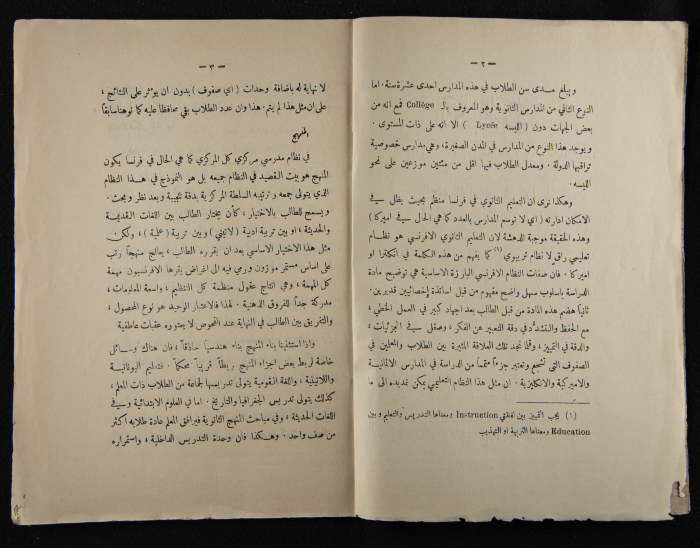 — ٢ —
ويبلغ مدى سن الطلاب في هذه المدارس احدى عشرة سنة. اما
النوع الثاني من المدارس الثانوية وهو المعروف بالـ Collège فمع انه من
بعض الجهات دون ( الليسه Lycée ) الا انه على ذات المستوى.
ويوجد هذا النوع من المدارس في المدن الصغيرة، وهي مدارس خصوصية
تراقبها الدولة. ومعدل الطلاب فيها اقل من مئتين موزعين على نحو
الليسه.
وهكذا نرى ان التعليم الثانوي في فرنسا منظم بحيث يظل في
الامكان ادارته ( اي لا توسم المدارس بالعدد كما هي الحال في اميركا )
وهذه الحقيقة موجبة الدهشة لان التعليم الثانوي الافرنسي هو نظام
تعليمي راق لا نظام تربيوي (١) كما يفهم من هذه الكلمة في انكلترا او
اميركا. فان صفات النظام الافرنسي البارزة الاساسية هي توضيح مادة
الدراسة باسلوب سهل واضح مفهوم من قبل اساتذة إخصائيين قديرين.
ثانياً هضم هذه المادة من قبل الطالب بعد اجهاد كبير في العمل الخطي،
مع الحفظ والتشدد في دقة التعبير عن الفكر، وصقل في الجزئيات،
والدقة في التمييز، وقلما نجد تلك العلاقة المثيرة بين الطلاب والمعلمين في
الصفوف التي تشجع وتعتبر جزءاً متمماً من الدراسة في المدارس الالمانية
والاميركية والانكليزية. ان مثل هذا النظام التعليمي يمكن تمديده الى ما
(١) يجب التمييز بين لفظتي Instruction ومعناها التدريس والتعليم وبين
Education ومعناها التربية او التهذيب
— ٣ —
لا نهاية له باضافة وحدات ( اي صفوف ) بدون ان يؤثر على النتائج،
على ان مثل هذا لم يتم. هذا وان عدد الطلاب بقي محافظا عليه كما نوهنا سابقاً
المنهج
في نظام مدرسي مركزي كل المركزي كما هي الحال في فرنسا يكون
المنهج هو بيت القصيد في النظام جميعه بل هو النموذج في هذا النظام
الذي يتولى جمعه وترتيبه السلطة المركزية بدقة عجيبة وبعد نظر وبحث.
ويسمح للطالب بالاختيار، كأن يختار الطالب بين اللغات القديمة
والحديثة، او بين تربية ادبية ( لاتيني ) وبين تربية ( علمية )، ولكن
مثل هذا الاختيار الاساسي بعد ان يقرره الطالب، يعالج منهاجاً رتب
على اساس مستمر موزون ورمي فيه الى اغراض يقرها الافرنسيون مهمة
كل المهمة، وهي انتاج عقول منظمة كل التنظيم، واسعة المعلومات،
مدركة جداً للفروق الذهنية. لهذا فالاعتبار الوحيد هو نوع المحصول،
والتفريق بين الطالب في النهاية عند الفحوص لا يعتوره عقبات عاطفية
واذا استثنينا بناء المنهج بناء هندسياً حاذقاً، فان هناك وسائل
خاصة لربط بعض اجزاء المنهج ربطاً قريباً محكماً. فتعليم اليونانية
واللاتينية، واللغة القومية يتولى تدريسها لجماعة من الطلاب ذات المعلم،
كذلك يتولى تدريس الجغرافيا والتاريخ. اما في العلوم الابتدائية وفي
اللغات الحديثة، وفي مباحث المنهج الثانوية فيرافق المعلم عادة طلابه اكثر
من صف واحد. وهكذا فان وحدة التدريس الداخلية، واستمراره